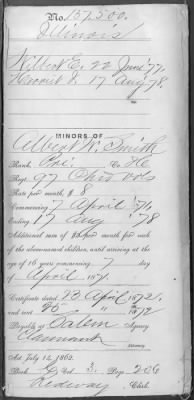 No. 157,500.
Illinois
Wilbert E. 22 June '77.
Harriet L. 17 Aug '78.
MINORS OF
Albert W. Smith
Rank Pri. Co. H
Regt. 97 Ohio Vols
Rate per month, $ 8
Commencing 7 April '71,
Ending 17 Aug '78
Additional sum of $2 per month for each
of the abovenamed children, until arriving at the
age of 16 years commencing 7 day
of April 187
Certificate dated 13 April 1872,
and sent " 1872
Payable at Salem Agency
Claimant Attorney
Act July 14, 1862.
Book Vol. 3. Page 206
Clerk.